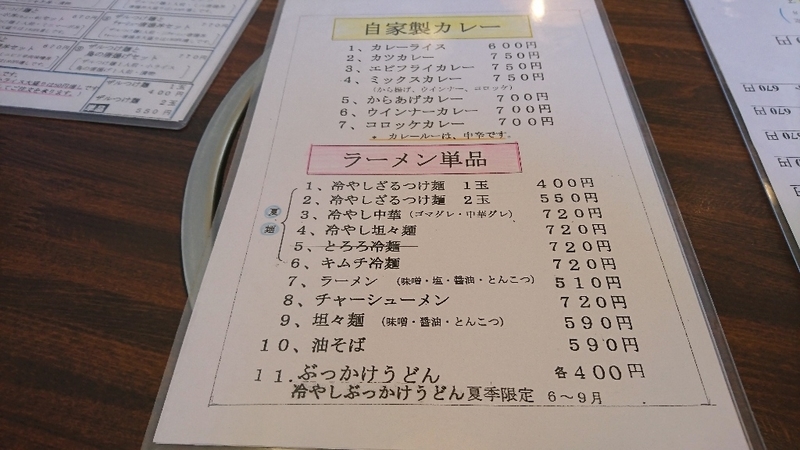 自家製カレー
1、カレーライス 600円
2、カツカレー 750円
3、エビフライカレー 750円
4、ミックスカレー 750円
(から揚げ、ウインナー、コロッケ)
5、からあげカレー 700円
6、ウインナーカレー 700円
7、コロッケカレー 700円
* カレールーは、中辛です。
ラーメン単品
夏麺
1、冷やしざるつけ麺 1玉 400円
2、冷やしざるつけ麺 2玉 550円
3、冷やし中華(ゴマダレ・中華ダレ) 720円
4、冷やし坦々麺 720円
5、とろろ冷麺 720円
6、キムチ冷麺 720円
7、ラーメン (味噌・塩・醤油・とんこつ) 510円
8、チャーシューメン 720円
9、坦々麺 (味噌・醤油・とんこつ) 590円
10、油そば 590円
11.ぶっかけうどん 各400円
冷やしぶっかけうどん夏季限定 6~9月
ザルつけ麺 1玉
400円
ザルつけ麺 2玉
670円